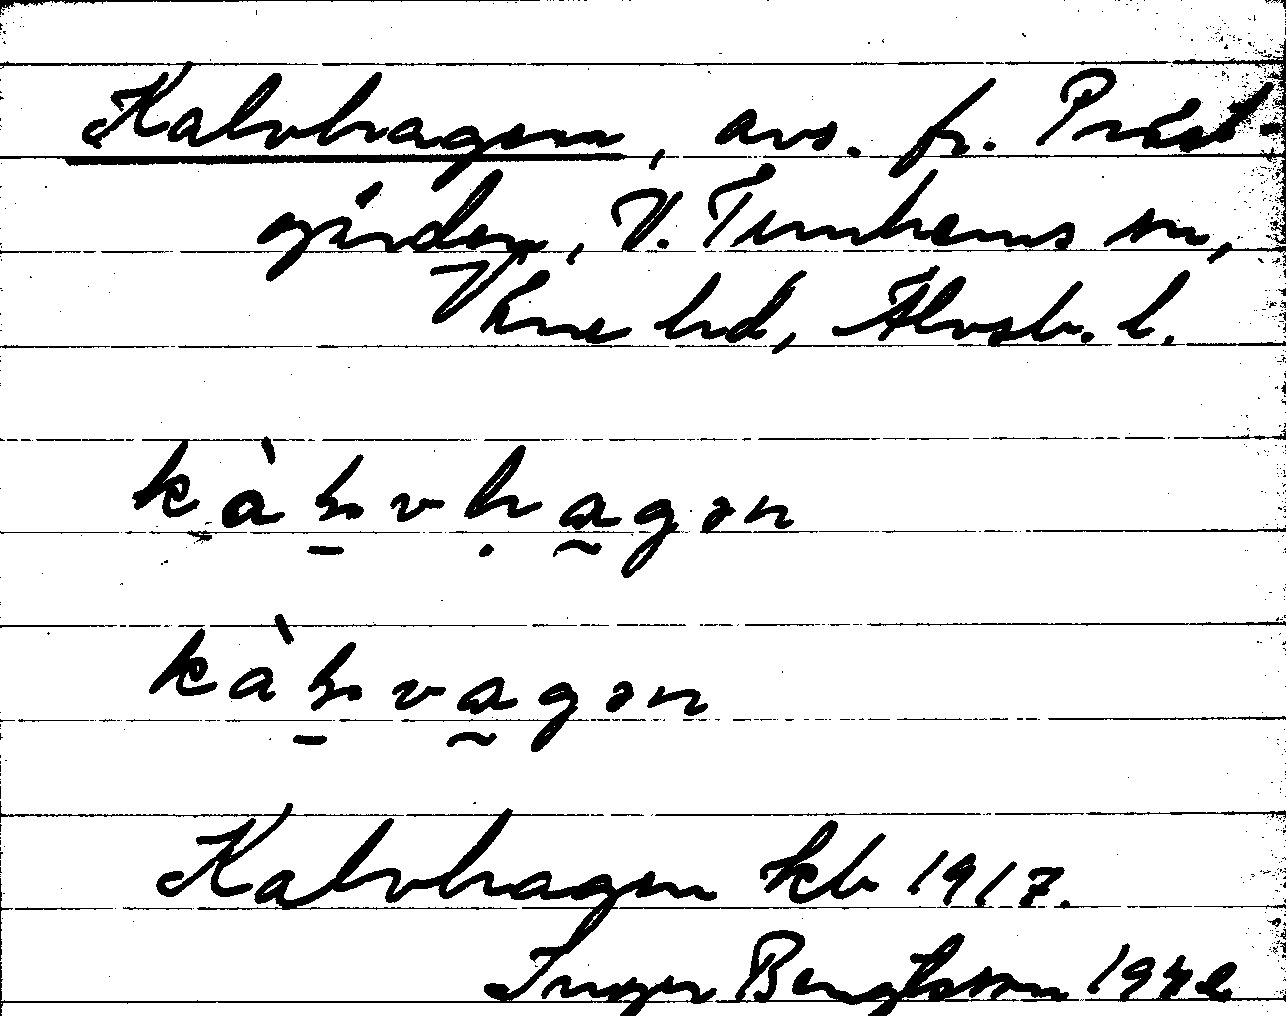 Kalvhagen, avs. fr. Präst-
gården, V. Tunhems sn,
Väne hd, Älvsb. l.
kàɫvḥa̰gən
kàɫva̰gən
Kalvhagen kb 1917.
Inger Bengtsson 1942